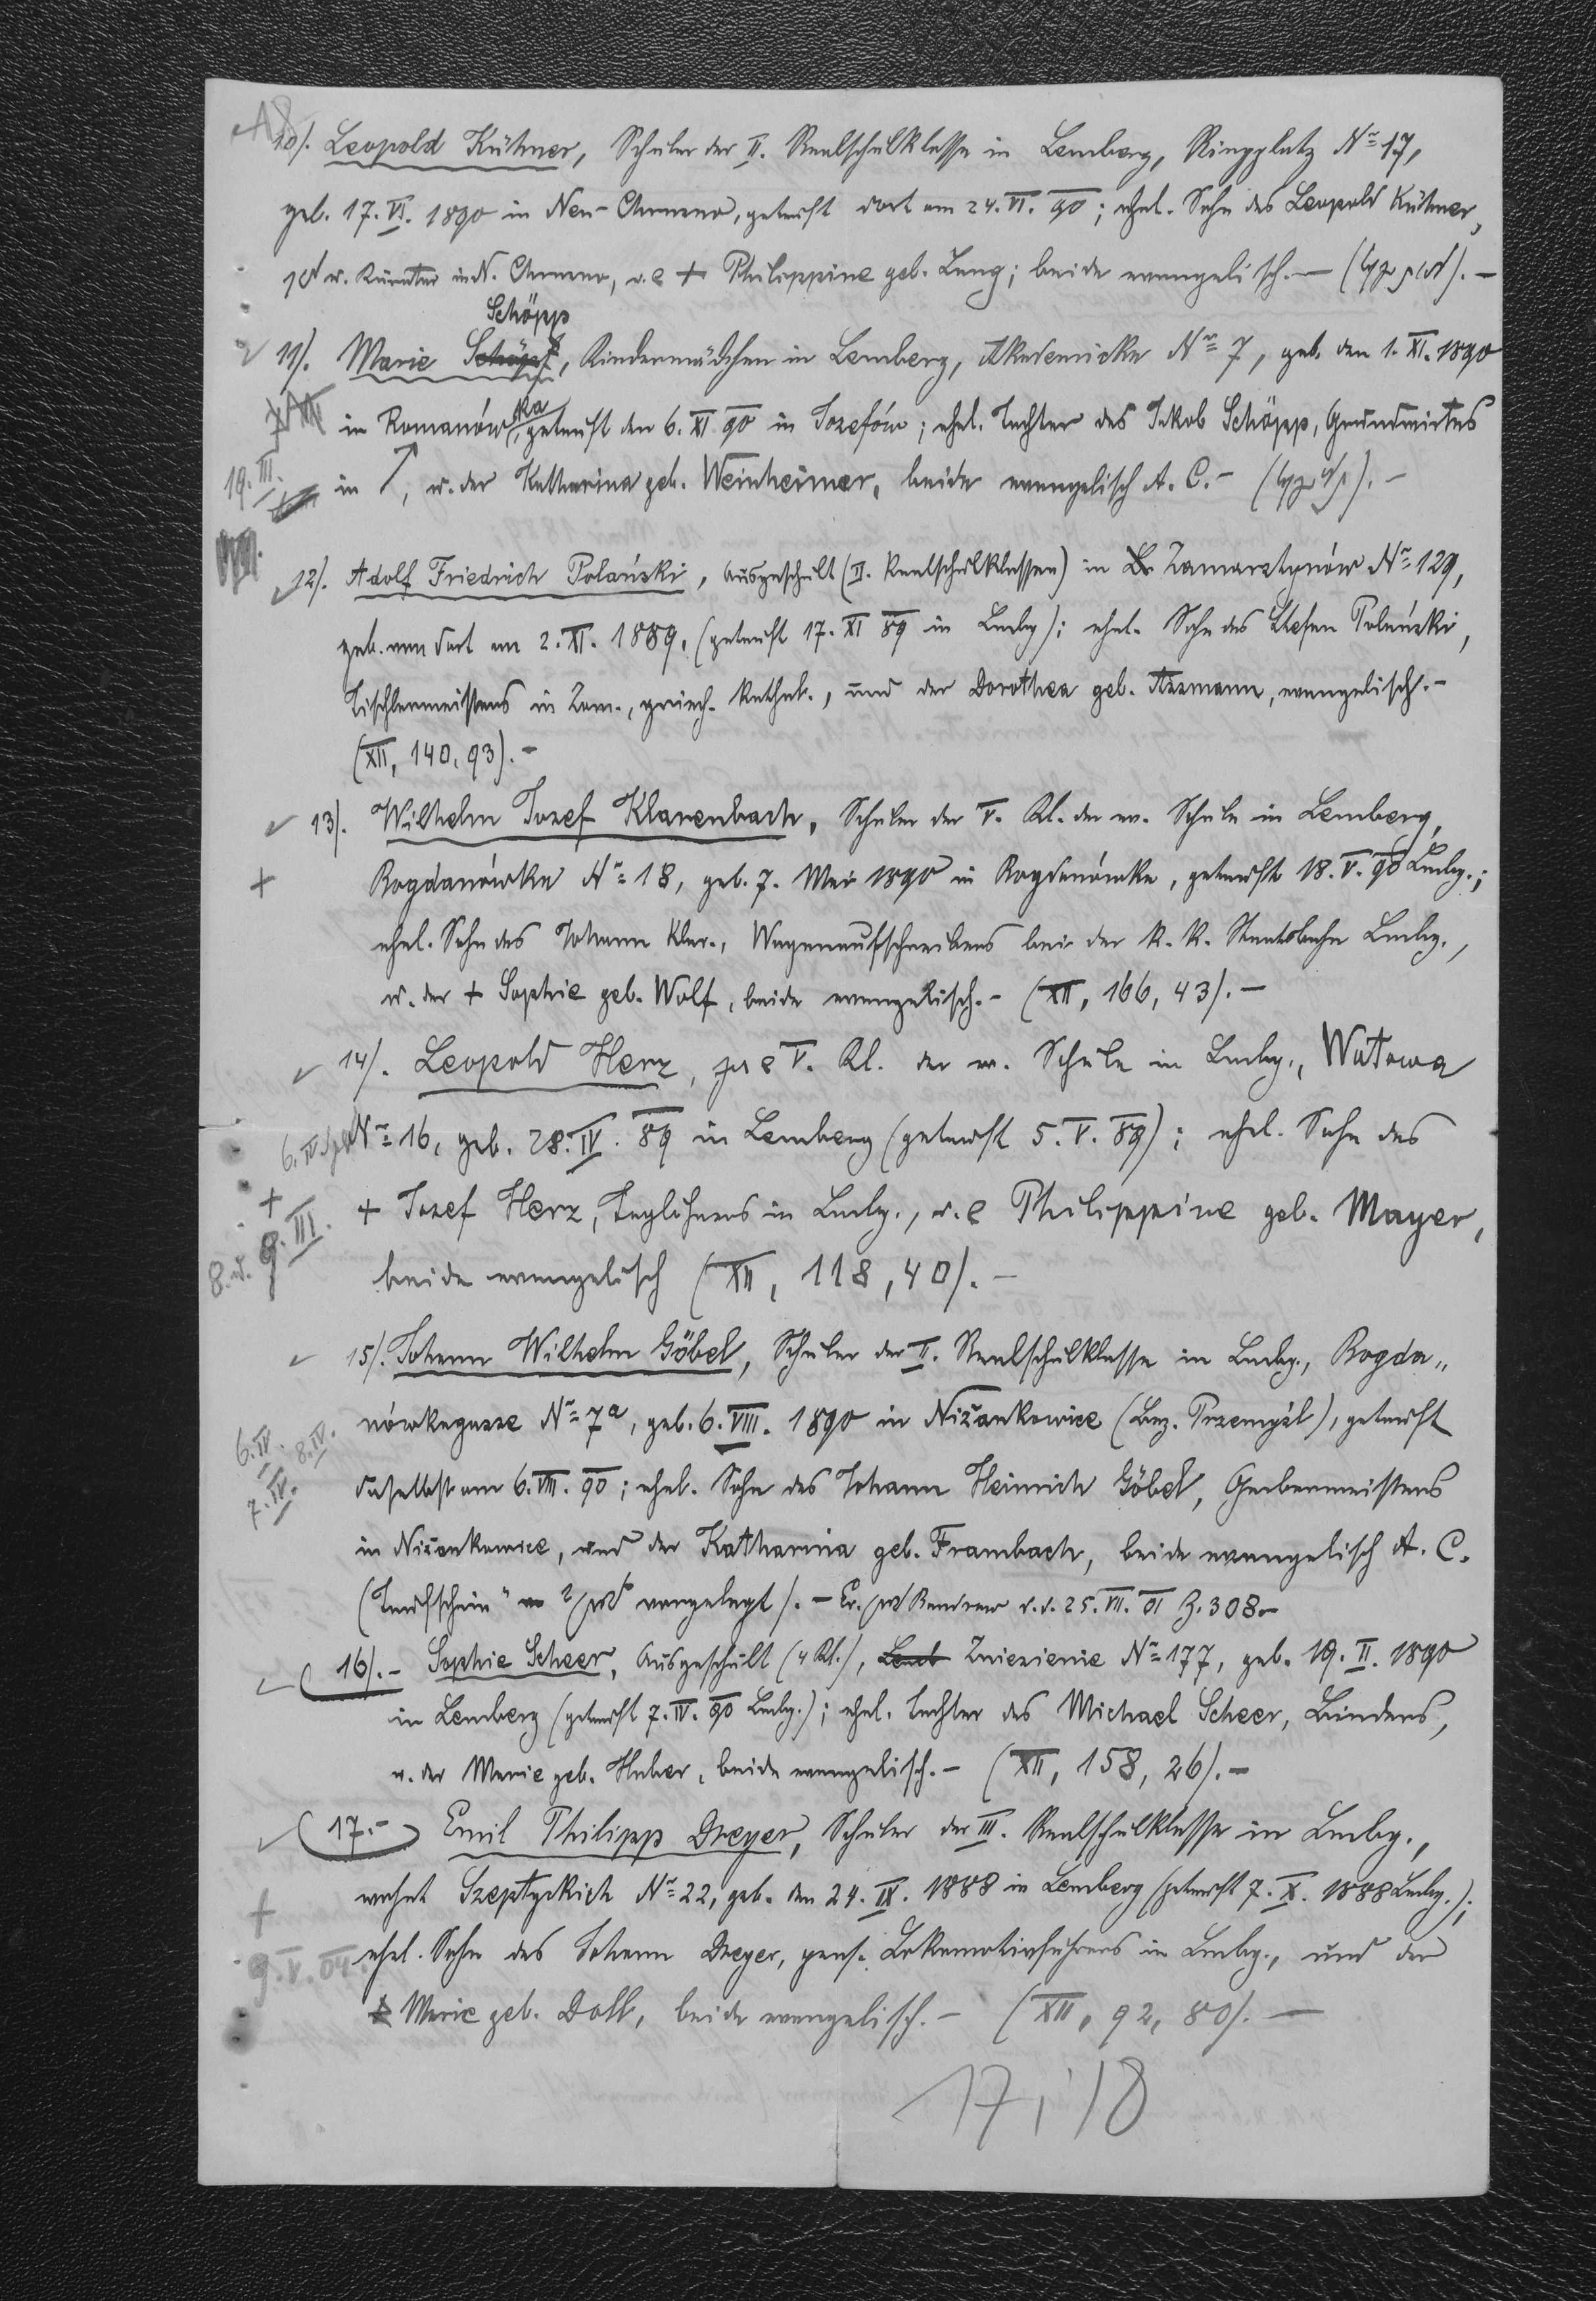 10/. Leopold Kühner, Schüler der II. Realschulklasse in Lemberg, Ringplatz No 17,
geb. 17. VI. 1890 in Neu-Chrusno, getauft dort am 24. VI. 90; ehel. Sohn des Leopold Kühner,
in N. Chrusno, + Philippine geb. Lang; beide evangelisch. —
Schöpp
11/. Marie Schöpf, Kindermädchen in Lemberg, Akademicka Nr 7, geb. den 1. XI. 1890
in Romanówka, getauft den 6. XI 90 in Josefów; ehel. Tochter des Jakob Schöpp, Grundwirtes
19. III. in ↑, u. der Katharina geb. Weinheimer, beide evangelisch A. C. –
12/. Adolf Friedrich Polański, Ausgeschult (II. Realschulklassen) in Zamarstynów No 129,
geb. am 2. XI. 1889, (getauft 17. XI 89 in Lmbg); ehel. Sohn des Stefan Polański,
Tischlermeisters in Zam., griech. kathol., und der Dorothea geb. Assmann, evangelisch. –
(XII, 140, 93). –
13/. Wilhelm Josef Klarenbach, Schüler der V. Kl. der ev. Schule in Lemberg,
+ Bogdanówka No 18, geb. 7. Mai 1890 in Bogdanówka, getauft 18. V. 90 Lmbg.;
ehel. Sohn des Johann Klar., Wagenaufschreibers bei der k. k. Staatsbahn Lmbg.,
u. der + Sophie geb. Wolf, beide evangelisch. – (XII, 166, 43). —
14/. Leopold Herz, V. Kl. der ev. Schule in Lmbg., Watowa
6. IV No 16, geb. 28. IV. 89 in Lemberg (getauft 5. V. 89); ehel. Sohn des
+ + Josef Herz, Taglöhners in Lmbg., Philippine geb. Mayer,
8. u. 9. III. beide evangelisch (XII, 118, 40). —
15/. Johann Wilhelm Göbel, Schüler der II. Realschulklasse in Lmbg., Bogda„
6. IV. 8. IV. nówkagasse No 7a, geb. 6. VIII. 1890 in Niżankowice (Bez. Przemyśl), getauft
7. IV. daselbst am 6. VIII. 90; ehel. Sohn des Johann Heinrich Göbel, Gerbermeisters
in Niżankowice, und der Katharina geb. Frambach, beide evangelisch A. C.
(Taufschein vorgelegt). – 25. VII. 01 Z. 308 –
16/. – Sophie Scheer, Ausgeschult (4 Kl.), Lemb Zniesienie No 177, geb. 19. II. 1890
in Lemberg (getauft 7. IV. 90 Lmbg.); ehel. Tochter des Michael Scheer, Binders,
u. der Marie geb. Huber, beide evangelisch. – (XII, 158, 26). –
17. – Emil Philipp Dreyer, Schüler der III. Realschulklasse in Lmbg.,
+ wohnt Szeptyckich No 22, geb. den 24. IX. 1888 in Lemberg (getauft 7. X. 1888 Lmbg.);
9. V. 04. ehel. Sohn des Johann Dreyer, pens. Lokomotivführers in Lmbg., und der
Marie geb. Doll, beide evangelisch. – (XII, 92, 80). —
17 i 18